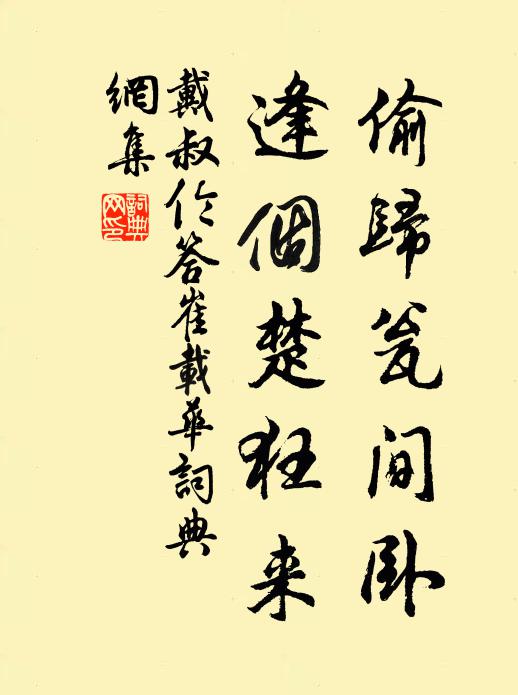 偷歸瓮间卧
逢個楚狂来
戴叔伦答崔載华詞典
網集
詞典
网印